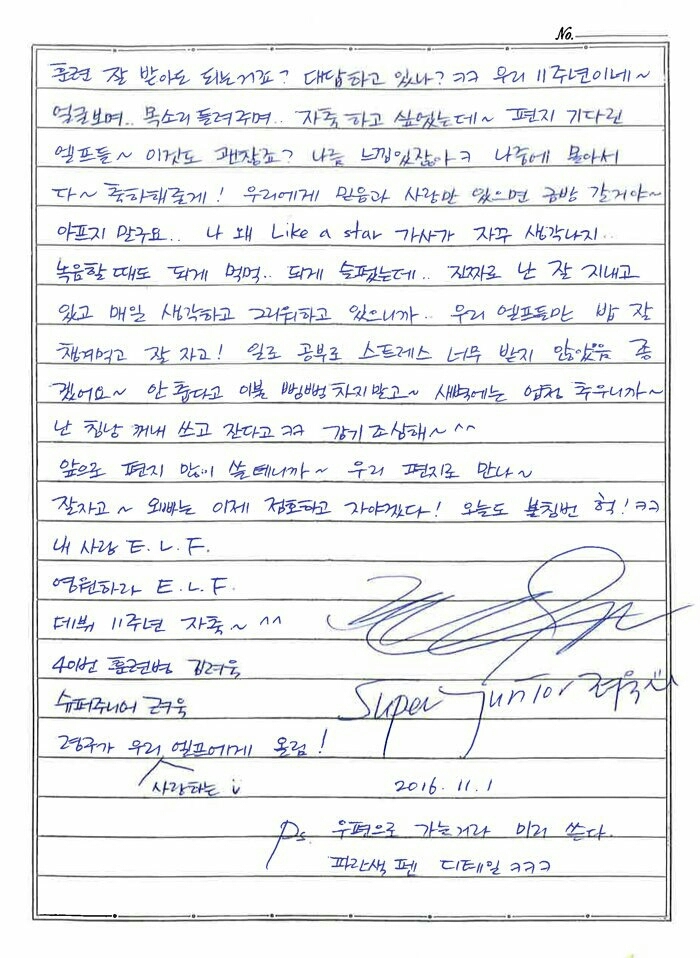 No.
훈련 잘 받아도 되는거죠? 대답하고 있나? ㅋㅋ 우리 11주년이네~
얼굴보며.. 목소리 들려주며.. 자축하고 싶었는데~ 편지 기다린
엘프들~ 이것도 괜찮죠? 나름 느낌있잖아ㅋ 나중에 몰아서
다~ 축하해줄게! 우리에게 믿음과 사랑만 있으면 금방 갈거야~
아프지 말구요.. 나 왜 Like a star 가사가 자꾸 생각나지..
녹음할 때도 되게 먹먹.. 되게 슬펐는데.. 진짜로 난 잘 지내고
있고 매일 생각하고 그리워하고 있으니까.. 우리 엘프들만 밥 잘
챙겨먹고 잘 자고! 일로 공부로 스트레스 너무 받지 않았음 좋
겠어요~ 안 춥다고 이불 뻥뻥 차지말고~ 새벽에는 엄청 추우니까~
난 침낭 꺼내 쓰고 잔다고ㅋㅋ 감기 조심해~ ^^
앞으로 편지 많이 쓸테니까~ 우리 편지로 만나~
잘자고~ 오빠는 이제 점호하고 자야겠다! 오늘도 불침번 헉!ㅋㅋ
내 사랑 E.L.F.
영원하라 E.L.F.
데뷔 11주년 자축~ ^^
40번 훈련병 김려욱
슈퍼주니어 려욱
Super Junior 려욱
려욱가 우리 엘프에게 올림!
사랑하는
2016.11.1
Ps. 우편으로 가는거라 미리 쓴다.
파란색 펜 디테일 ㅋㅋㅋ